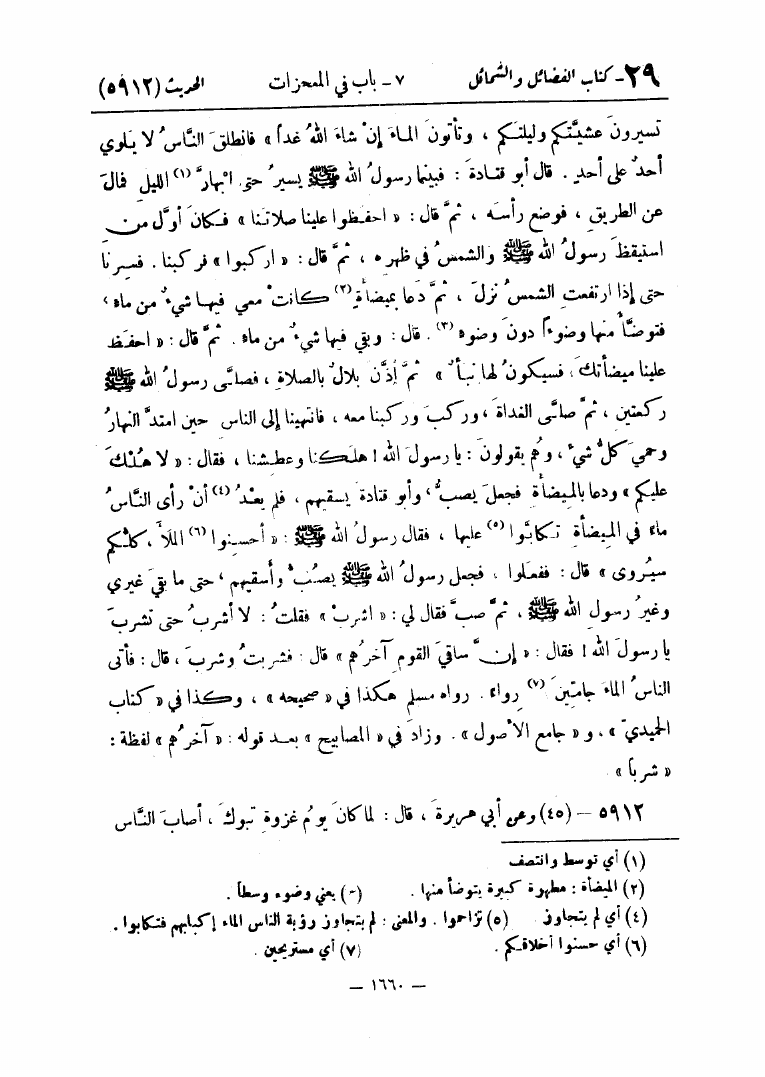 ٢٩ـ كتاب الفضائل والشمائل ٧ ـ باب في المعجزات الحديث (٥٩١٢)
تسيرونَ عشيَّتَكم وليلتَكم ، وتأتونَ الماءَ إِنْ شاءَ اللهُ غداً » فانطلقَ النَّاسُ لا يَلوي
أحدٌ على أحدٍ . قال أبو قتادةَ : فبينما رسولُ الله ﷺ يسيرُ حتى ابْهارَّ (١) الليل فمالَ
عن الطريقِ ، فوضع رأسَه ، ثمَّ قال : « احفَظوا علينا صلاتَنا » فكانَ أوَّلَ من
استيقظَ رسولُ الله ﷺ والشمسُ في ظهرِه ، ثمَّ قال : « اركبوا » فركبنا . فسِرنا
حتى إِذا ارتفعتِ الشمسُ نزلَ ، ثمَّ دَعا بميضأةٍ (٢) كانتْ معي فيها شيءٌ من ماءٍ ،
فتوضَّأ منها وضوءاً دونَ وضوءٍ (٣) . قال : وبقي فيها شيءٌ من ماءٍ . ثمَّ قال : « احفَظ
علينا ميضأتَك ، فسيكونُ لها نبأٌ » ثمَّ أذَّن بلالٌ بالصلاةِ ، فصلَّى رسولُ الله ﷺ
ركعتين ، ثمَّ صلَّى الغداةَ ، وركبَ وركبنا معه ، فانتهينا إِلى الناس حين امتدَّ النهارُ
وحميَ كلُّ شيءٍ ، وهُم يقولونَ : يا رسولَ الله ! هلَكنا وعطِشنا ، فقال : « لا هُلْكَ
عليكم » ودعا بالميضأةِ فجعلَ يصبُّ ، وأبو قتادةَ يسقيهم ، فلم يعْدُ (٤) أنْ رأى النَّاسُ
ماءً في الميضأةِ تكابُّوا (٥) عليها ، فقال رسولُ الله ﷺ : « أحسِنوا (٦) الملأَ ، كلُّكم
سيُروى » قال : ففعلوا ، فجعل رسولُ الله ﷺ يصُبُّ وأسقيهم ، حتى ما بقيَ غيري
وغيرُ رسولِ الله ﷺ ، ثمَّ صبَّ فقال لي : « اشربْ » فقلتُ : لا أشربُ حتى تشربَ
يا رسولَ الله ! فقال : « إِنَّ ساقيَ القومِ آخرُهم » قال : فشربتُ وشربَ ، قال : فأتى
الناسُ الماءَ جامِّينَ (٧) رِواءً . رواه مسلم هكذا في « صحيحه » ، وكذا في « كتاب
الحميديّ » ، و « جامع الأصول » . وزادَ في « المصابيح » بعد قوله : « آخرُهم » لفظة :
« شرباً » .
٥٩١٢ – (٤٥) وعن أبي هريرةَ ، قال : لما كانَ يومُ غزوةِ تبوكَ ، أصابَ النَّاسَ
(١) أي توسط وانتصف
(٢) الميضأة : مطهرة كبيرة يتوضأ منها . (٣) يعني وضوء وسطاً .
(٤) أي لم يتجاوز . (٥) تزاحموا . والمعنى : لم يتجاوز رؤية الناس الماء إكبابهم فتكابوا .
(٦) أي حسنوا أخلاقكم . (٧) أي مستريحين .
– ١٦٦٠ –